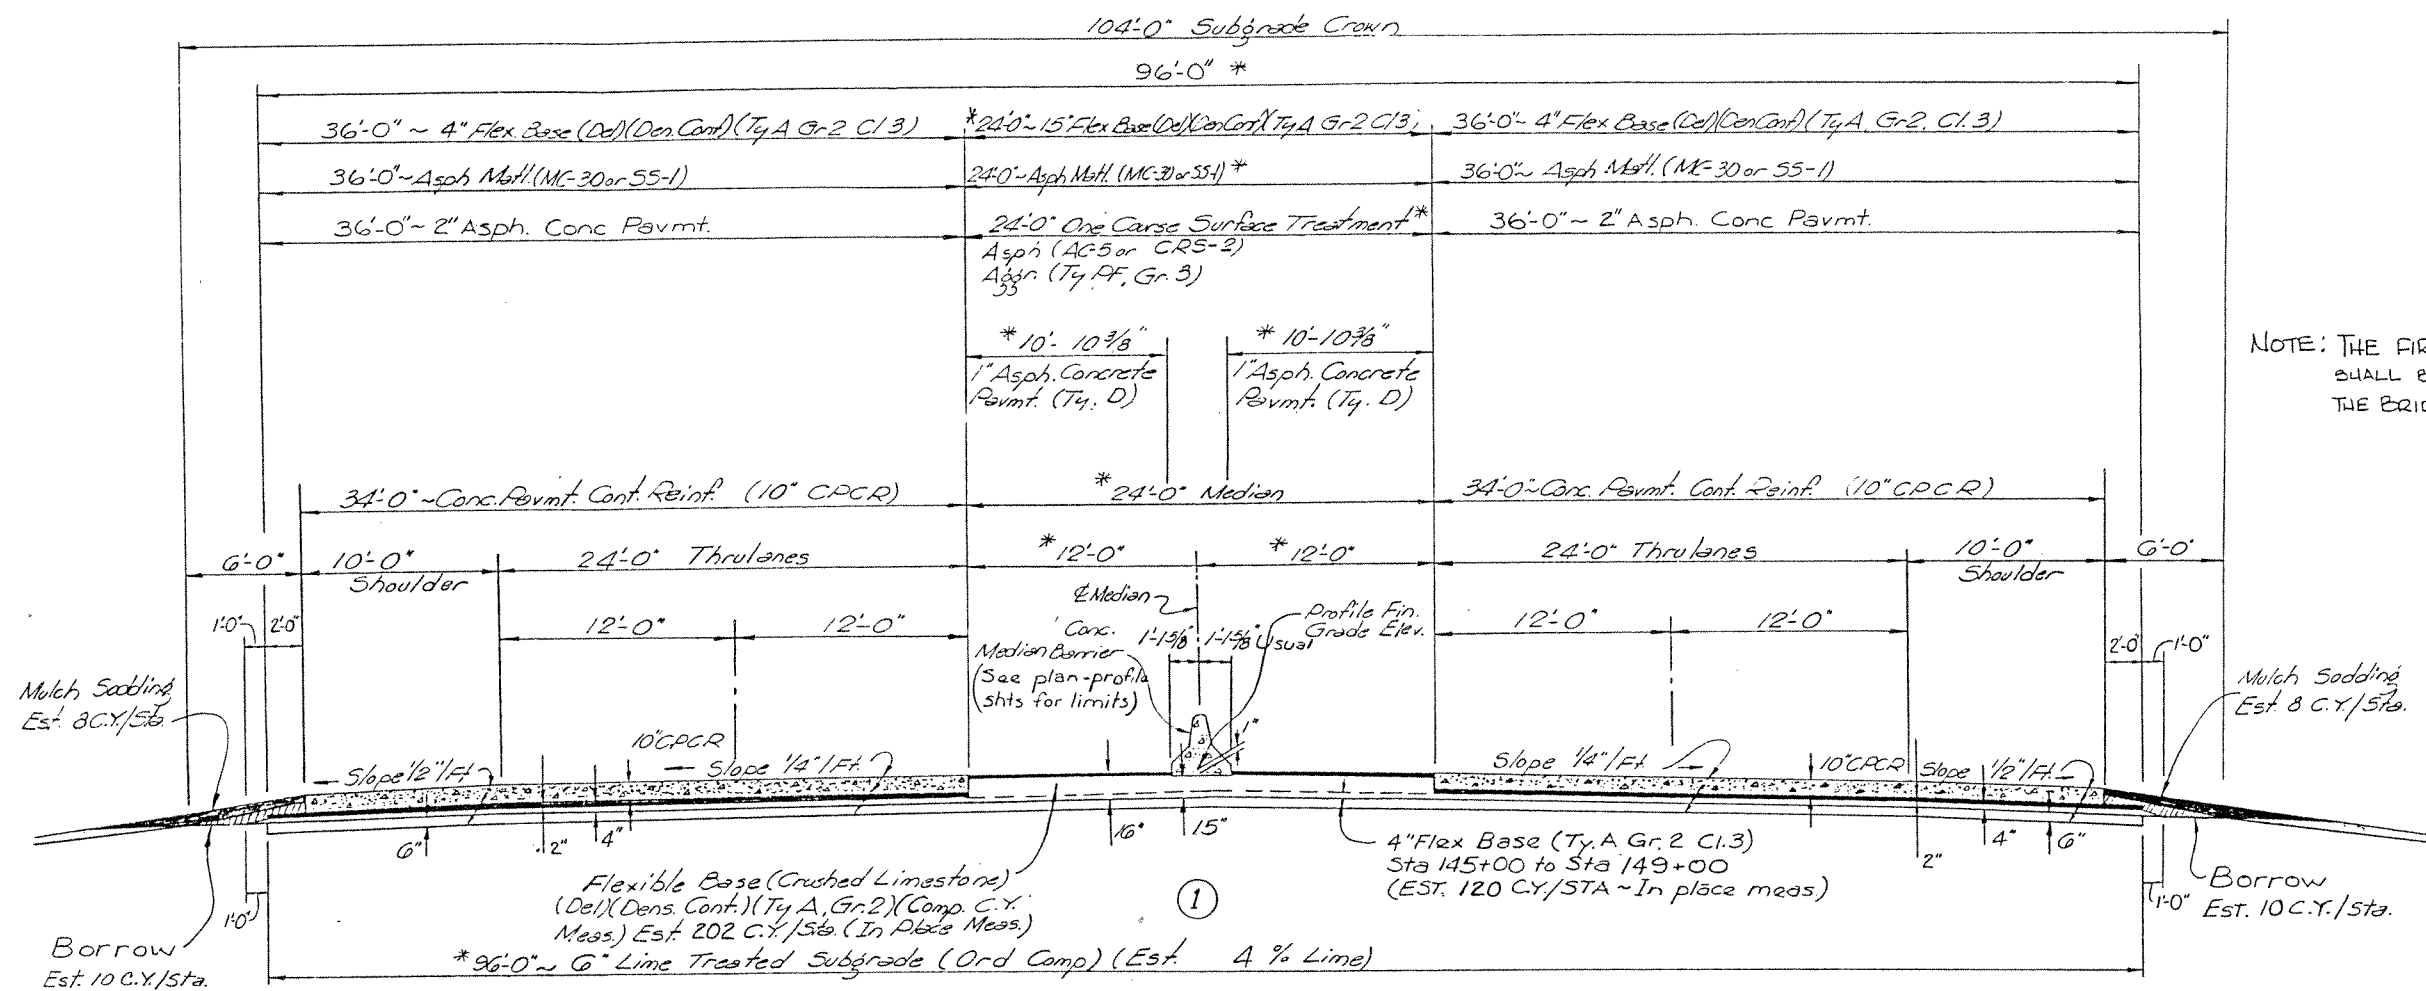 104'-0" Subgrade Crown
96'-0" *
36'-0" ~ 4" Flex. Base (Del)(Den. Cont)(Ty A Gr 2 Cl 3)
*24'-0"~15" Flex Base(Del)(Den Cont)(Ty A Gr 2 Cl 3)
36'-0"~ 4" Flex Base (Del)(Den Cont)(Ty A, Gr 2, Cl. 3)
36'-0"~Asph Matl. (MC-30 or SS-1)
24'-0"~Asph Matl. (MC-30 or SS-1) *
36'-0"~ Asph Matl. (MC-30 or SS-1)
36'-0"~ 2" Asph. Conc Pavmt.
24'-0" One Course Surface Treatment *
Asph (AC-5 or CRS-2)
Aggr. (Ty PF, Gr. 3)
36'-0" ~ 2" Asph. Conc Pavmt.
* 10'- 10 3/8"
1" Asph. Concrete
Pavmt. (Ty. D)
* 10'-10 3/8"
1" Asph. Concrete
Pavmt. (Ty. D)
NOTE: THE FIR
SHALL B
THE BRID
34'-0"~Conc. Pavmt. Cont. Reinf. (10" CPCR)
*24'-0" Median
34'-0"~Conc. Pavmt. Cont. Reinf. (10" CPCR)
6'-0"
10'-0"
Shoulder
24'-0" Thrulanes
*12'-0"
*12'-0"
24'-0" Thrulanes
10'-0"
Shoulder
6'-0"
1'-0"
2'-0"
12'-0"
12'-0"
℄ Median
Conc.
Median Barrier
(See plan-profile
shts for limits)
1'-1 5/8"
1'-1 5/8" Usual
Profile Fin.
Grade Elev.
12'-0"
12'-0"
2'-0"
1'-0"
Mulch Sodding
Est. 8 C.Y./Sta.
Mulch Sodding
Est. 8 C.Y./Sta.
Slope 1/2"/Ft
10" CPCR
Slope 1/4"/Ft.
1"
Slope 1/4"/Ft
10" CPCR
Slope 1/2"/Ft.
6"
2"
4"
16"
15"
2"
4"
6"
4" Flex Base (Ty. A Gr. 2 Cl. 3)
Sta 145+00 to Sta 149+00
(EST. 120 CY./STA ~ In place meas.)
Flexible Base (Crushed Limestone)
(Del)(Dens. Cont.)(Ty A, Gr. 2)(Comp. C.Y.
Meas.) Est. 202 C.Y./Sta. (In Place Meas.)
1
1'-0"
1'-0"
Borrow
Est. 10 C.Y./Sta.
Borrow
Est. 10 C.Y./Sta.
*96'-0"~ 6" Lime Treated Subgrade (Ord Comp) (Est. 4 % Lime)